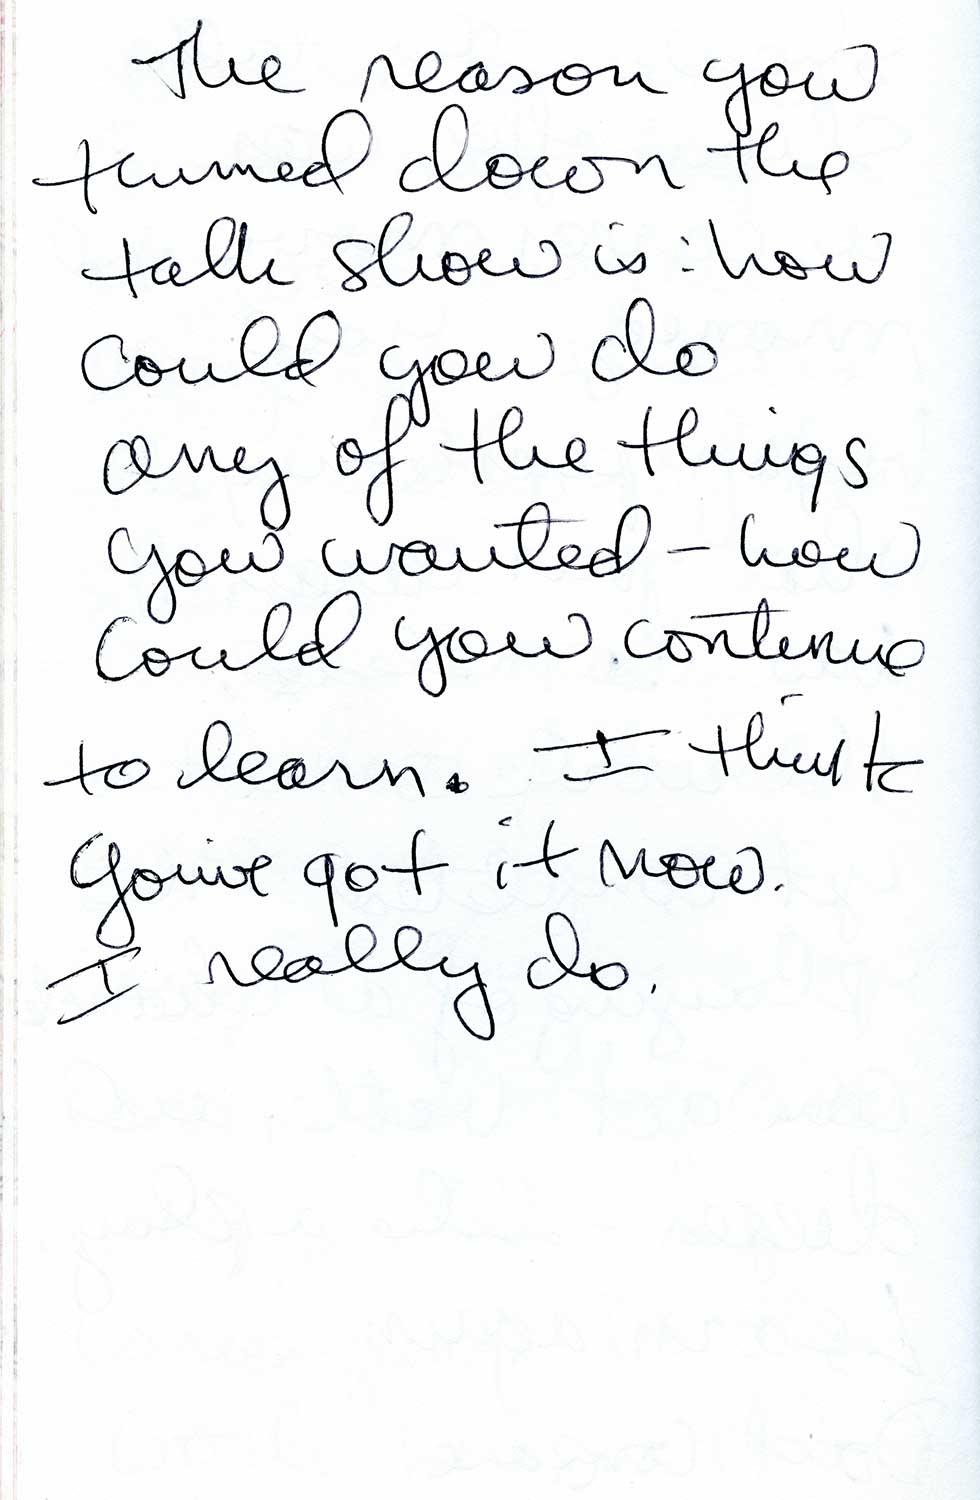 The reason you
turned down the
talk show is: how
could you do
any of the things
you wanted – how
could you continue
to learn. I think
you've got it now.
I really do.